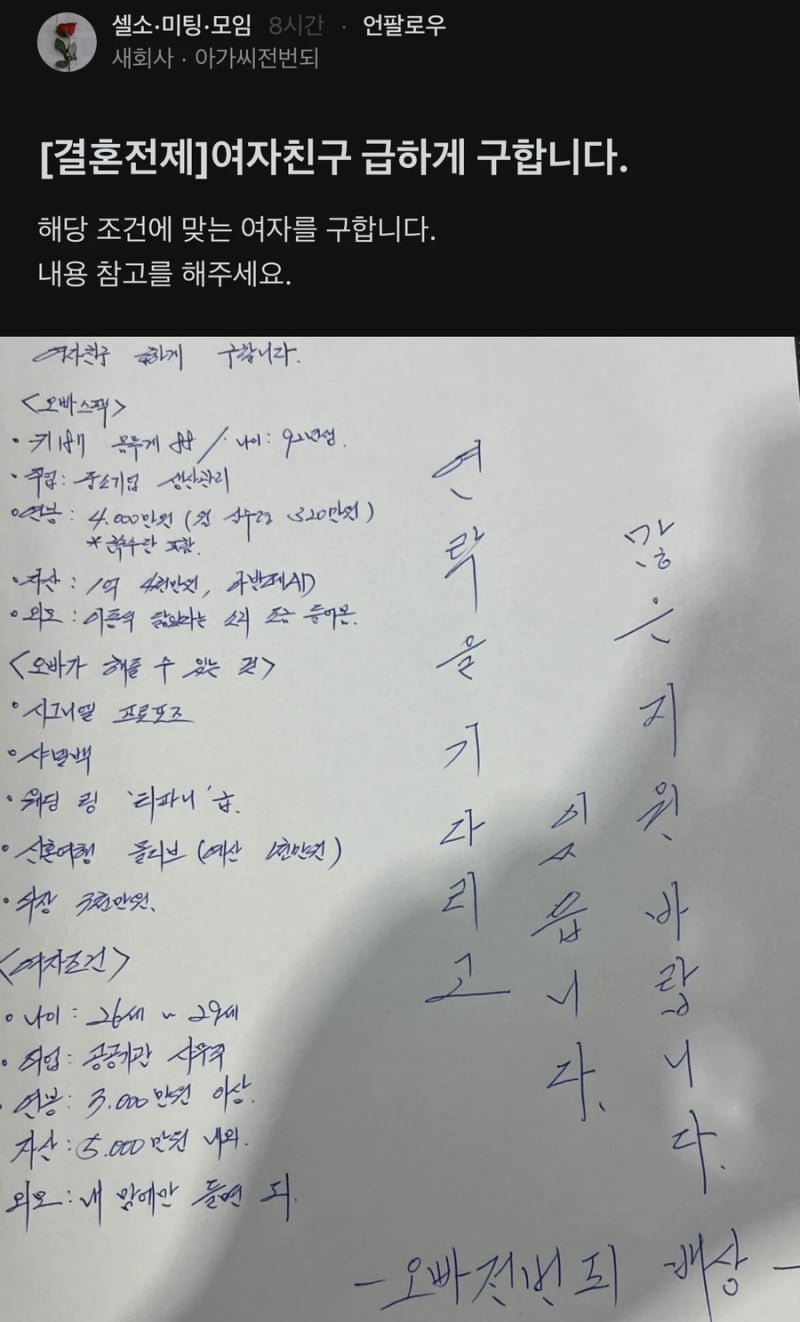 셀소·미팅·모임 8시간 · 언팔로우
새회사 · 아가씨전번되
[결혼전제]여자친구 급하게 구합니다.
해당 조건에 맞는 여자를 구합니다.
내용 참고를 해주세요.
여자친구 급하게 구합니다.
<오빠스펙>
• 키 몸무게 88 / 나이: 92년생.
• 직업: 중소기업 생산관리
• 연봉: 4.000만원 (월 실수령 320만원)
* 특수란 포함.
• 자산: 1억 4천만원, 아반떼AD
• 외모: 이름의 닮았다는 소리 조금 들어봄.
<오빠가 해줄 수 있는 것>
• 시그니엘 프로포즈
• 샤넬백
• 웨딩 링 '티파니'급.
• 신혼여행 몰디브 (예산 천만원)
• 차장 3천만원.
<여자조건>
• 나이: 26세 ~ 29세
• 직업: 공공기관 사무직
• 연봉: 3.000만원 이상.
자산: 5.000만원 내외.
외모: 내 맘에만 들면 되.
연락을 기다리고
있읍니다.
많은 지원 바랍니다.
- 오빠전번되 배상 -